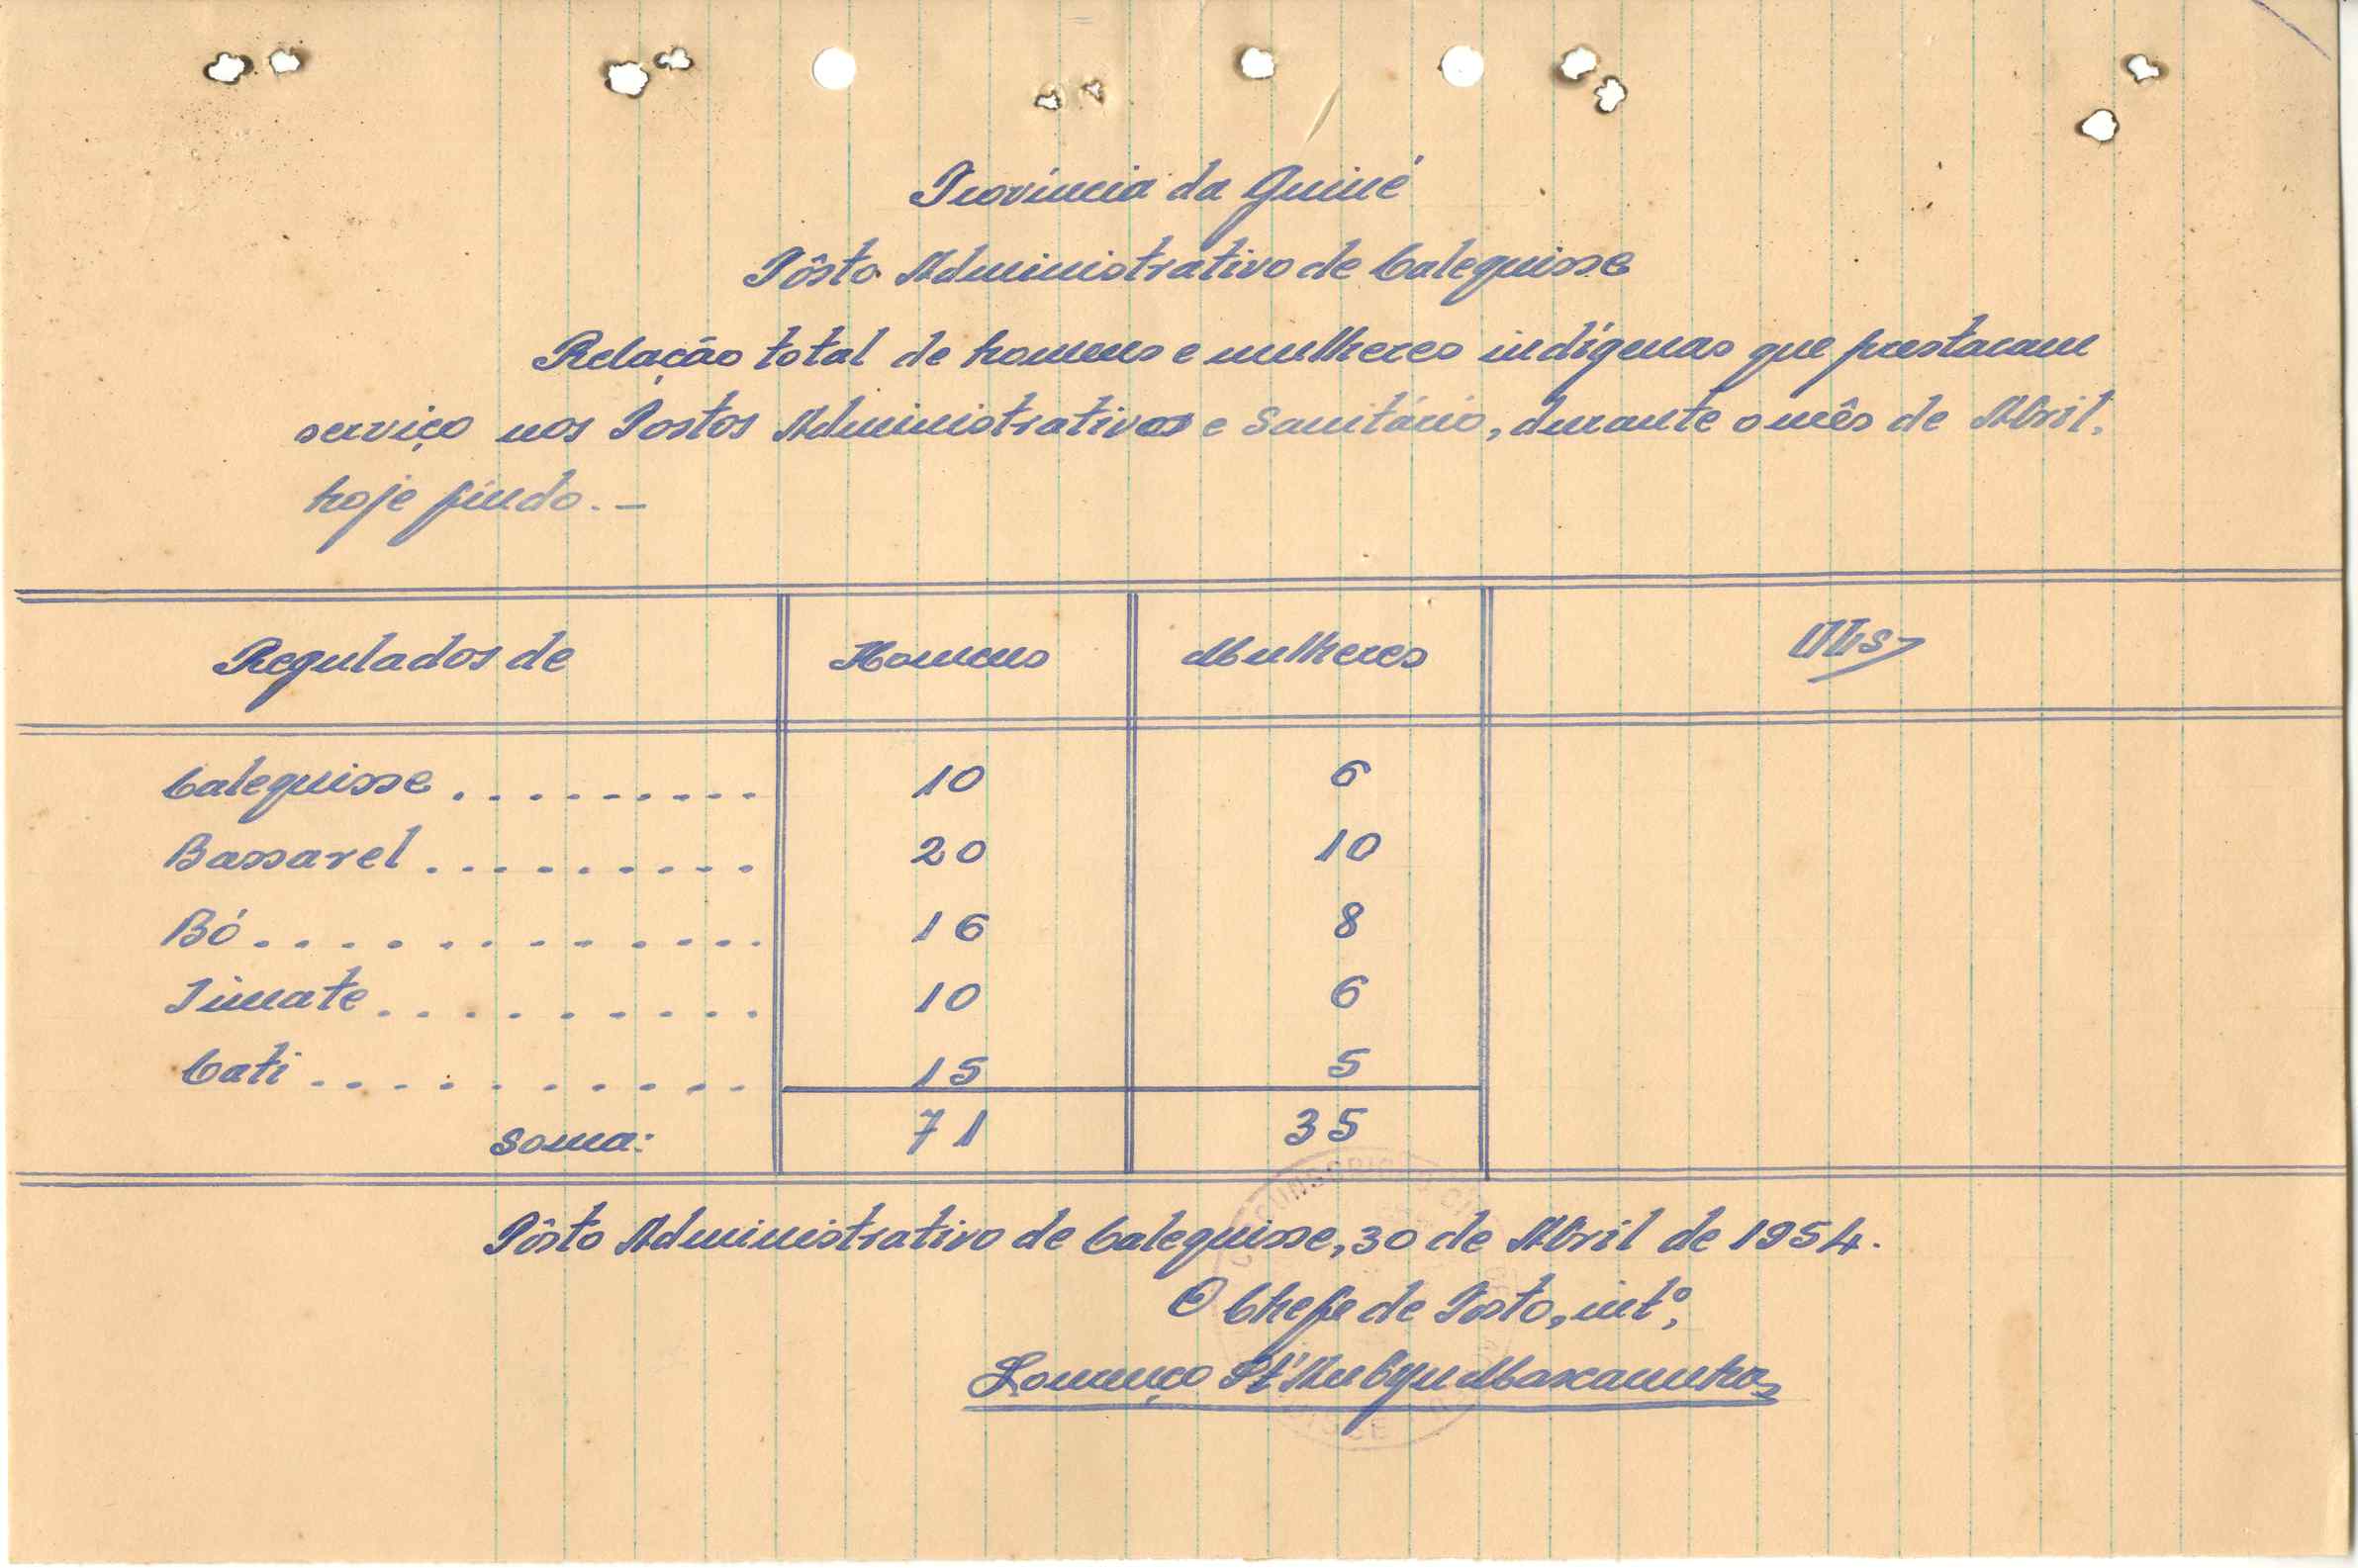 Província da Guiné
Pôsto Administrativo de Calequisse
Relação total de homens e mulheres indígenas que prestaram
serviço nos Postos Administrativos e Sanitário, durante o mês de Abril,
hoje findo. —
Regulados de Homens Mulheres Obs
Calequisse . . . . . . . . . 10 6
Bassarel . . . . . . . . . 20 10
Bó . . . . . . . . . . . . 16 8
Timate . . . . . . . . . . 10 6
Cati . . . . . . . . . . . 15 5
Soma: 71 35
Pôsto Administrativo de Calequisse, 30 de Abril de 1954.
O Chefe de Posto, intº,
Lourenço